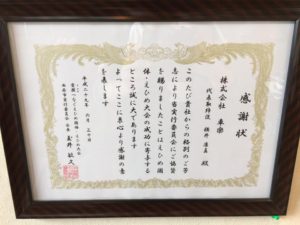 感謝状
株式会社 車楽
代表取締役 殿
このたび貴社からの格別のご芳
志により当実行委員会にご協賛
を賜りましたことはえひめ国
体・えひめ大会の成功に寄与する
ところ誠に大であります
よってここに衷心より感謝の意
を表します
平成二十九年 六月 三十日